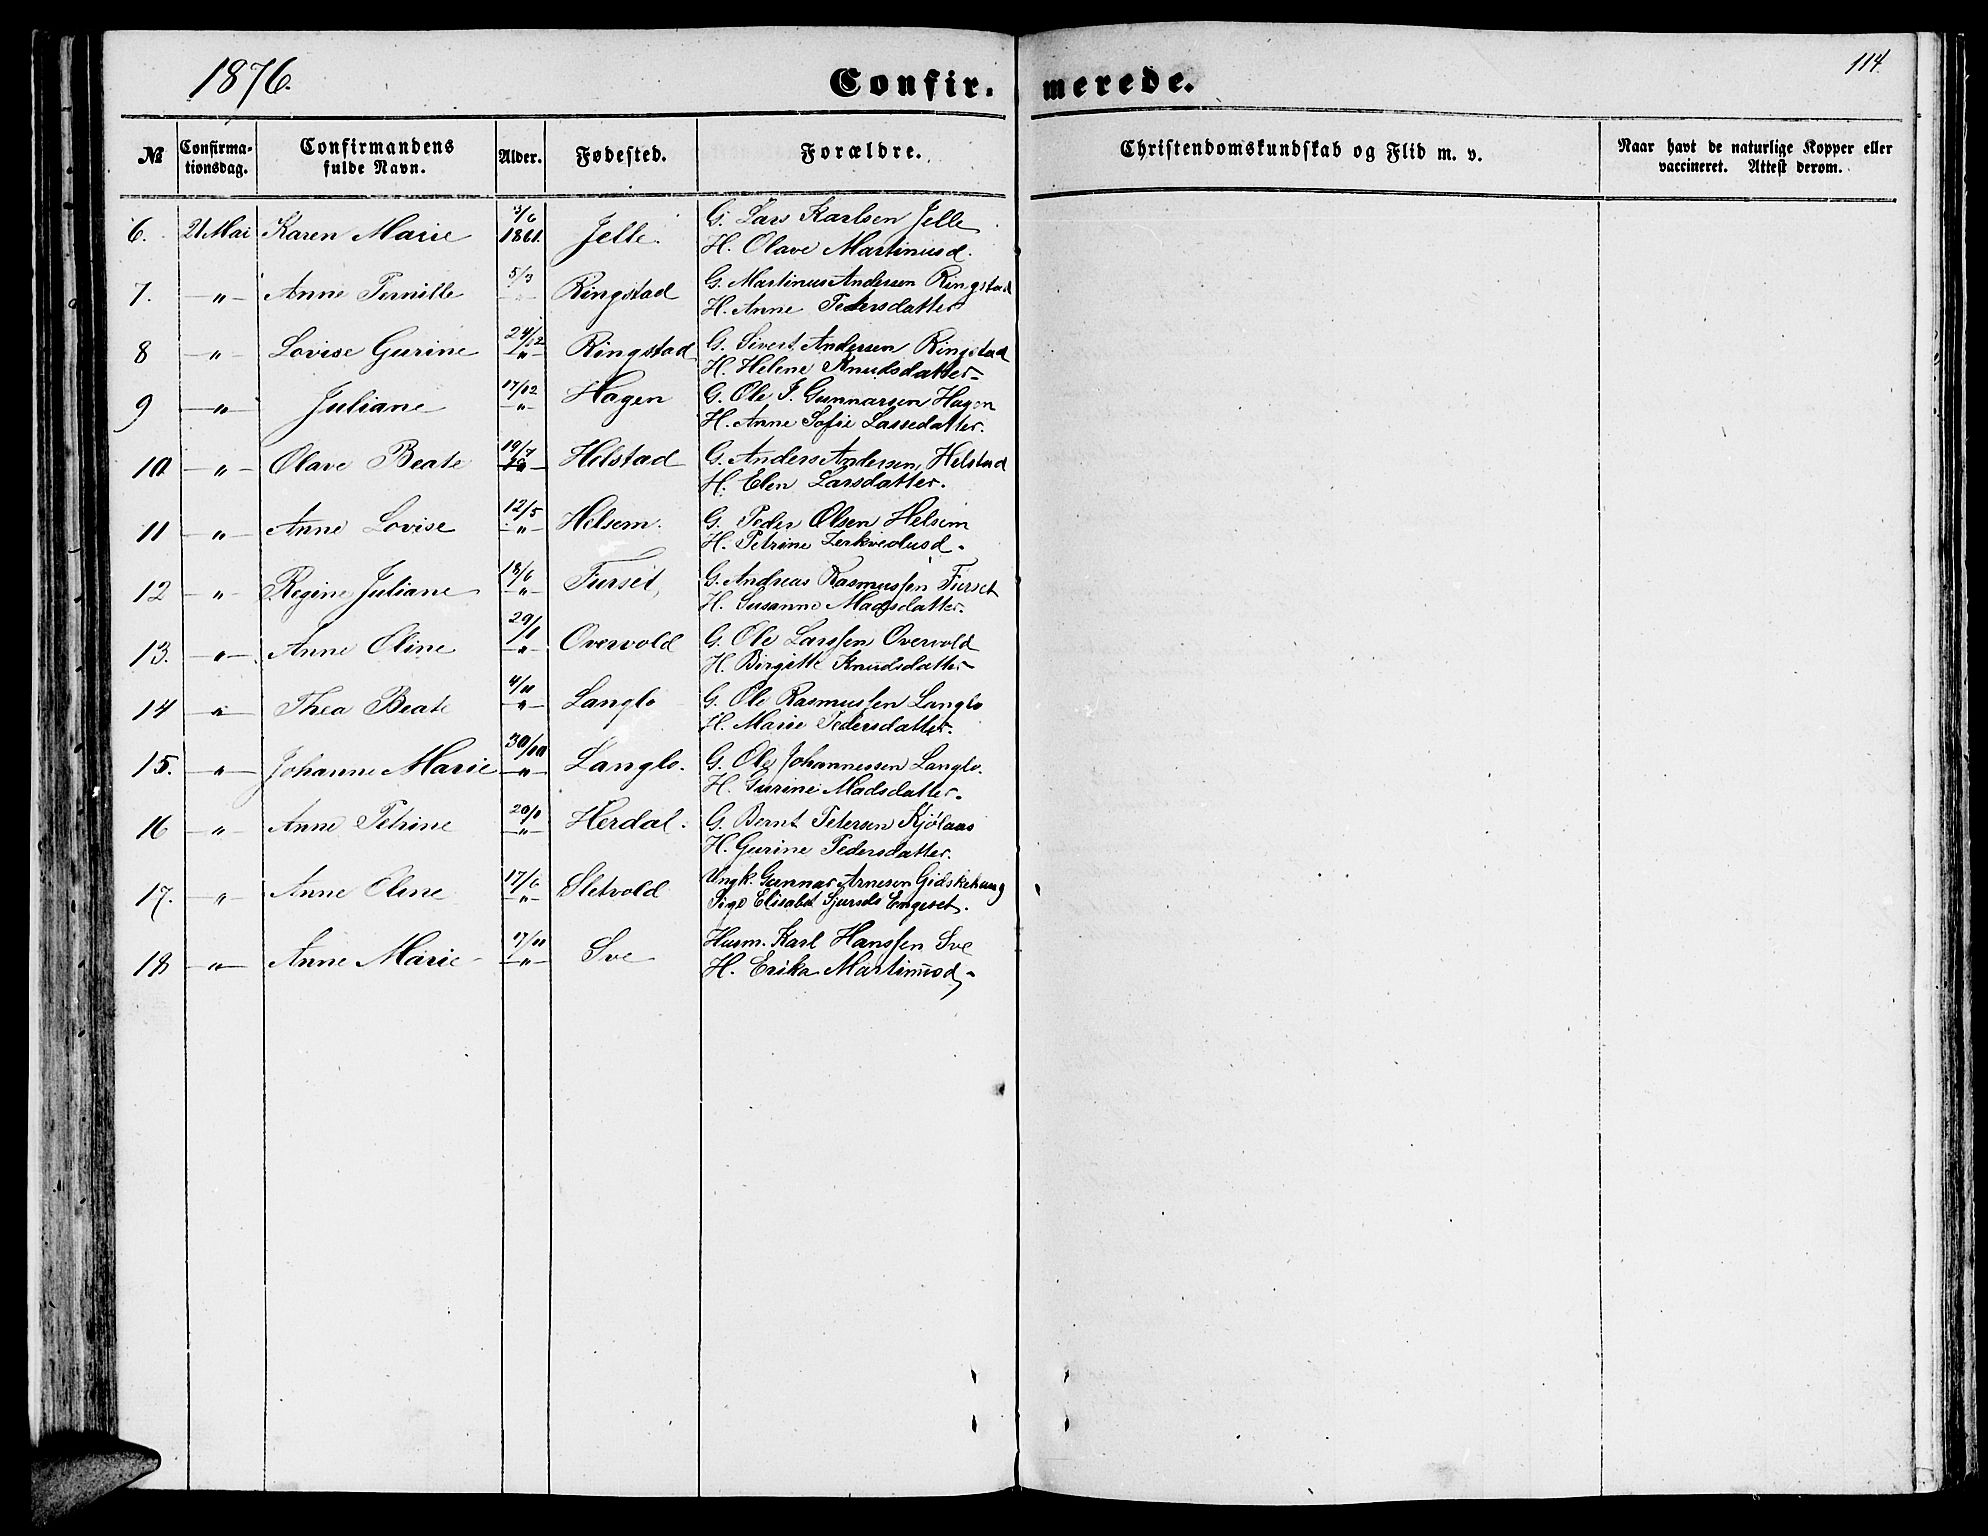 1876.
Confir. merede.
114.
№ Confirma-tionsdag. Confirmandens fulde Navn. Alder. Fødested. Forældre. Christendomskundskab og Flid m. v. Naar havt de naturlige Kopper eller vaccineret. Attest derom.
6. 21 Mai Karen Marie 3/6 1861. Jelle. G. Lars Karlsen Jelle
H. Olave Martinusd.
7. -"- Anne Pernille 5/3 Ringstad G. Martinus Andersen Ringstad
H. Anne Pedersdatter
8 -"- Lovise Gurine 24/12 -"- Ringstad G. Sivert Andersen Ringstad
H. Helene Knudsdatter-
9 -"- Juliane 17/12 -"- Hagen G. Ole J. Gunnarsen Hagen
H. Anne Sofie Lassedatter.
10 -"- Olave Beate 19/7 Helstad G. Anders Andersen Helstad
H. Elen Larsdatter.
11 -"- Anne Lovise 12/5 -"- Helsem. G. Peder Olsen Helsem
H. Petrine Zerkvedusd.
12 -"- Regine Juliane 18/6 -"- Furset, G. Andreas Rasmussen Furset
H. Susanne Madsdatter.
13. -"- Anne Oline -"- Overvold G. Ole Larssen Overvold
H. Birgitte Knudsdatter
14 -"- Thea Beate 4/11 -"- Langlo G. Ole Rasmussen Langlo
H. Marie Pedersdatter.
15. -"- Johanne Marie 30/10 -"- Langlo. G. Ole Johannessen Langlo.
H. Gurine Madsdatter.
16 -"- Anne Petrine -"- Herdal. G. Bernt Petersen Kjølaas
H. Gurine Pedersdatter.
17. -"- Anne Oline 17/6 -"- Sletvold Ungk. Gunnar Arnesen Gidskehaug
Pige Elisabet Sjursdt Engeset.
18 -"- Anne Marie 17/11 -"- Sve Husm. Karl Hanssen Sve
H. Erika Martinusd.